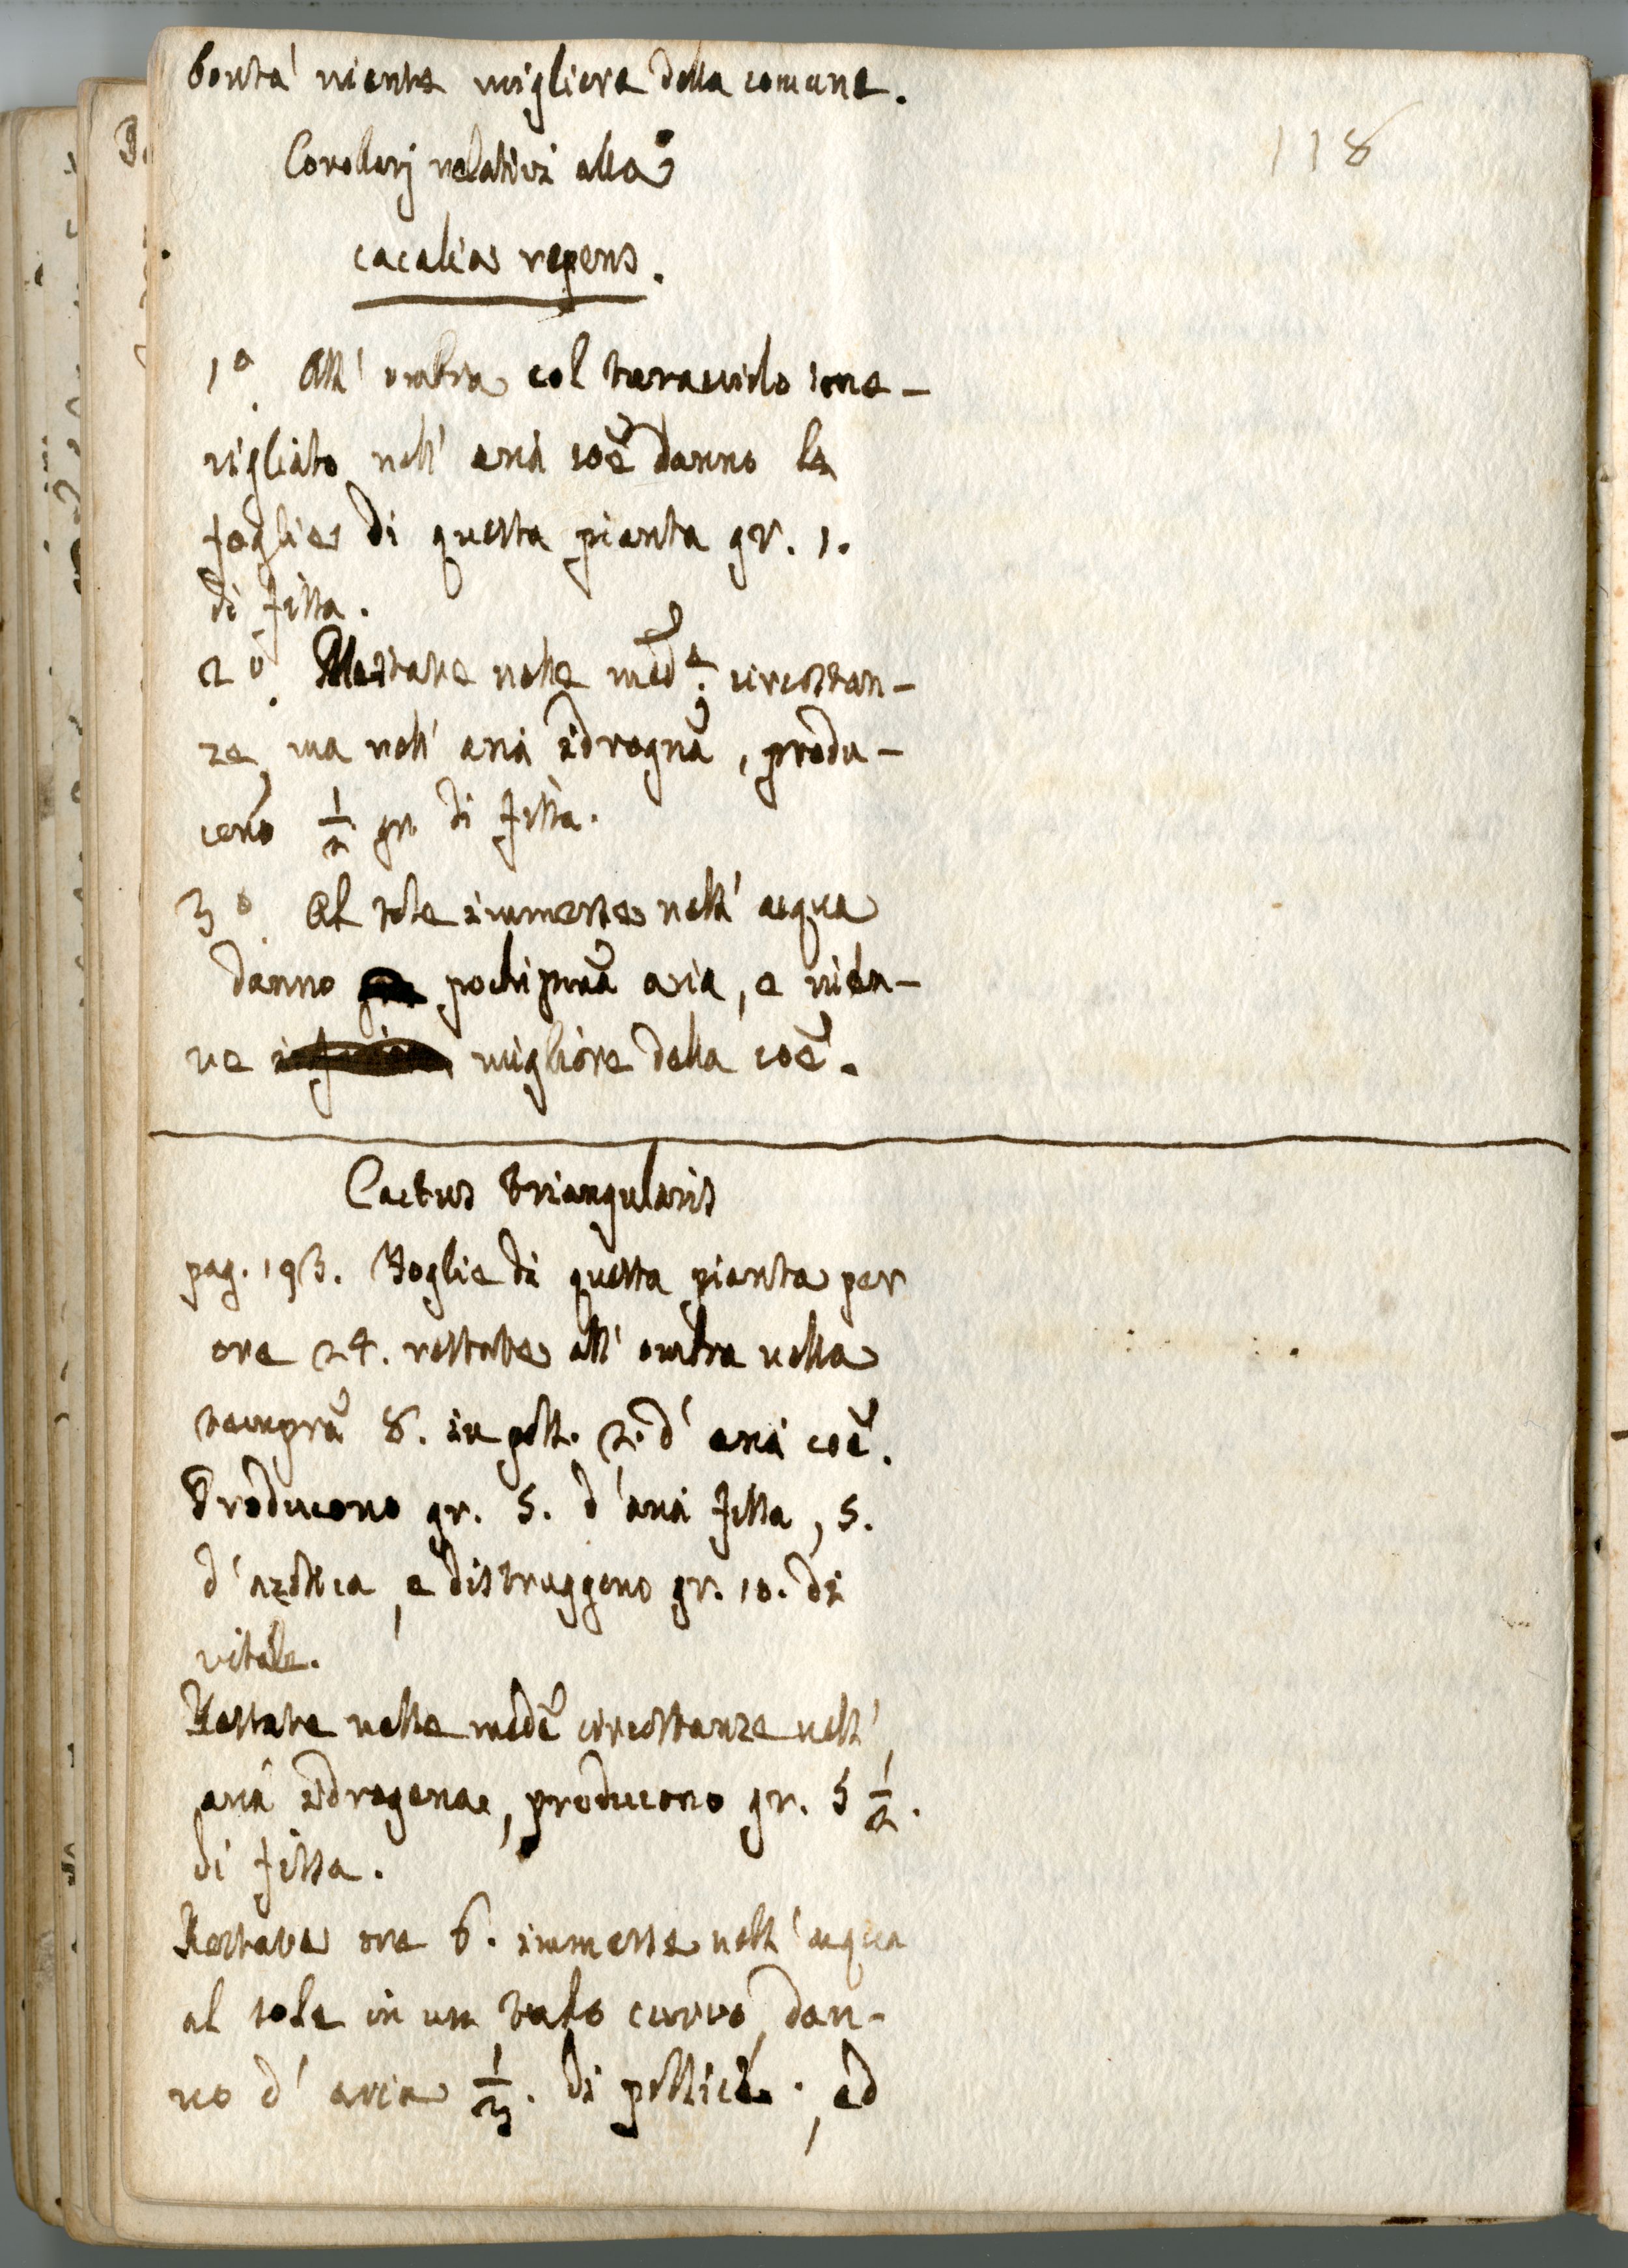 bontà niente migliore della comune.
118
Corollarj relativi alla
cacalia repens.
1°. All' ombra col turacciolo sme-
rigliato nell' aria coe danno le
foglie di questa pianta gr. 1.
di fissa.
2°. Restate nelle med.e circostan-
ze, ma nell' aria idrogna, produ-
cono 1/2 gr. di fissa.
3°. Al sole immerse nell' acqua
danno pochissima aria, e nien-
te migliore della coe.
Cactus triangularis
pag. 193. Foglie di questa pianta per
ore 24. restate all' ombra nella
tempra 8. in poll. 2. d' aria coe.
Producono gr. 5. d' aria fissa, 5.
d' azotica, e distruggono gr. 10. di
vitale.
Restate nelle mede circostanze nell'
aria idrogena, producono gr. 5 1/2.
di fissa.
Restate ore 6. immerse nell' acqua
al sole in un tubo curvo, dan-
no d' aria 1/3. di pollice, ed